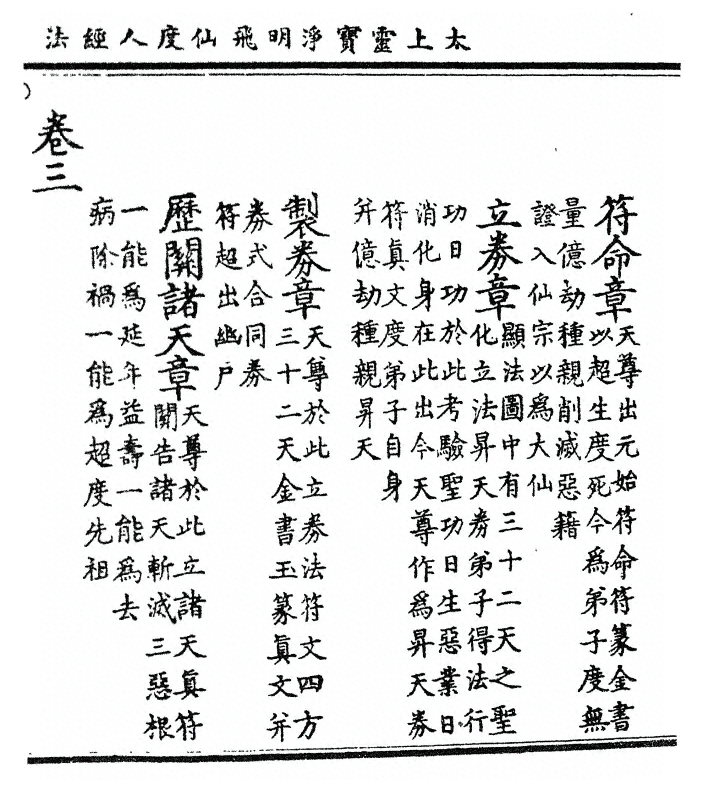 太上靈寶淨明飛仙度人經法
符命章
天尊出元始符命符篆金書
以超生度死今爲弟子度無
量億劫種親削滅惡籍
證入仙宗以爲大仙
立券章
顯法圖中有三十二天之聖
化立法昇天券弟子得法行
功日功於此考驗聖功日生惡業日
消化身在此出今天尊作爲昇天券
符眞文度弟子自身
并億劫種親昇天
製券章
天尊於此立券法符文四方
三十二天金書玉篆眞文并
券式合同券
符超出幽戶
歷關諸天章
天尊於此立諸天眞符
關告諸天斬滅三惡根
一能爲延年益壽一能爲去
病除禍一能爲超度先祖
卷三